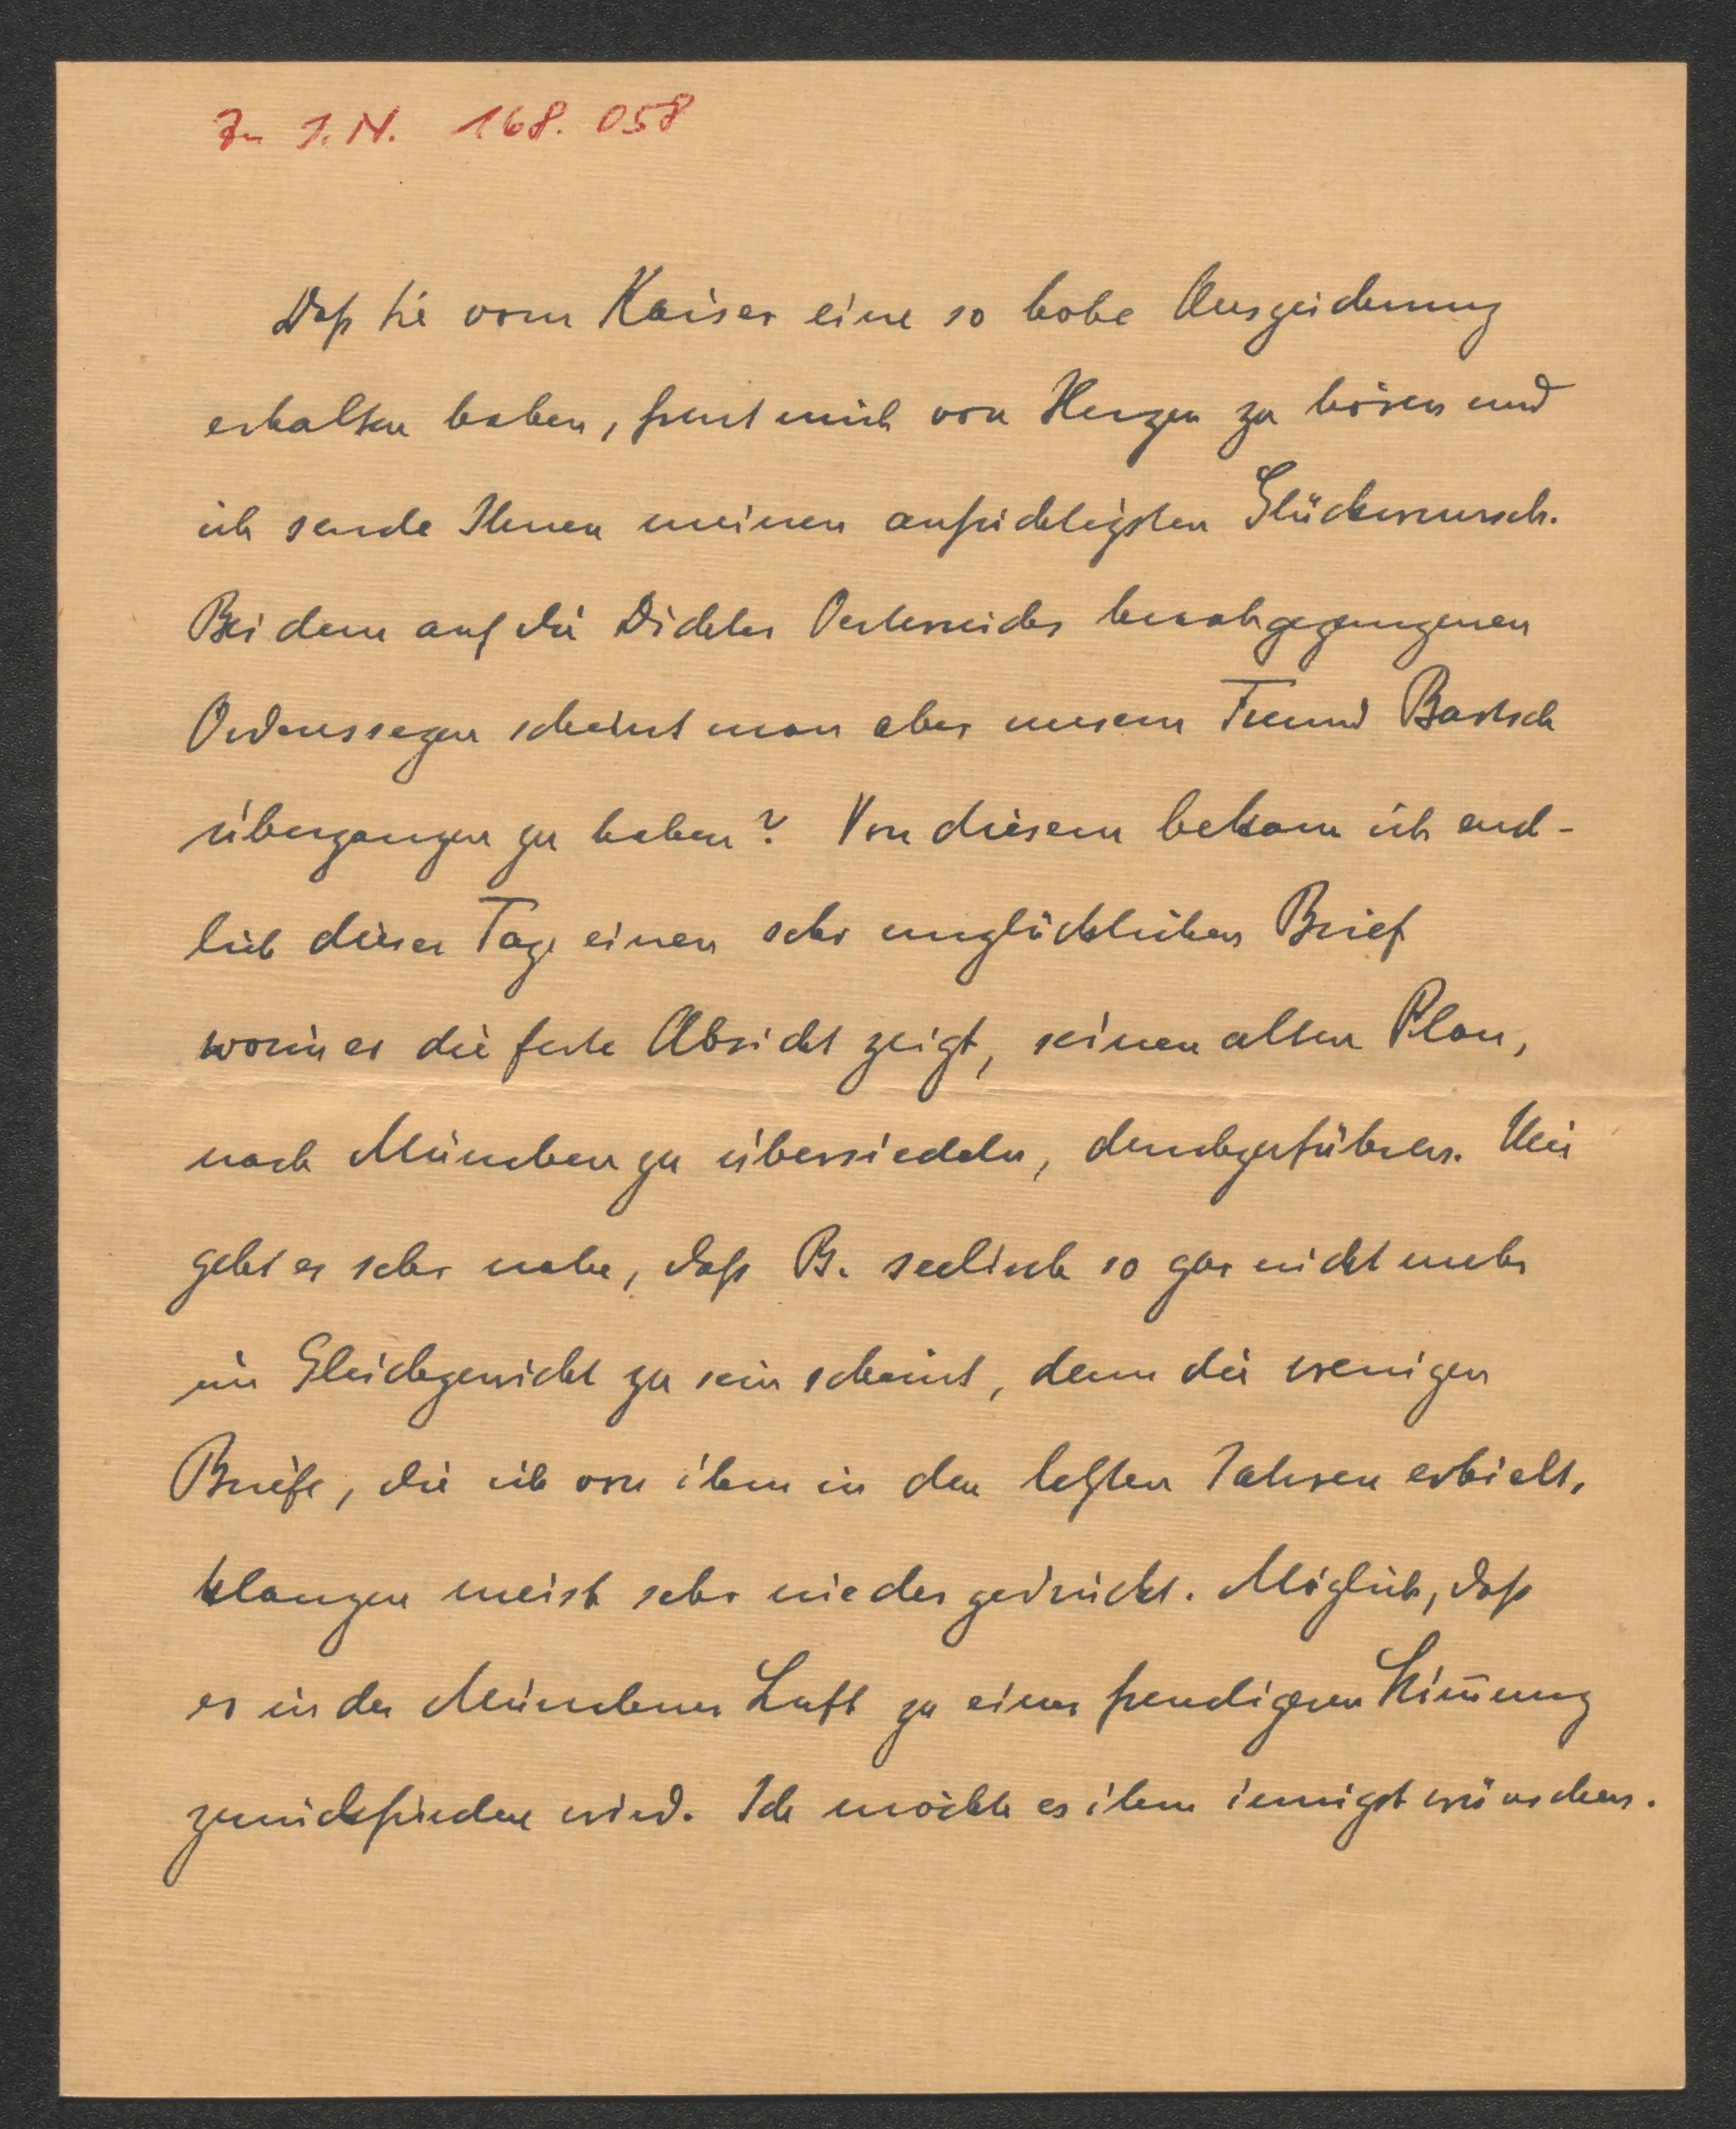 Zu I.N. 168.058
Daß Sie vom Kaiser eine so hohe Auszeichnung
erhalten haben, freut mich von Herzen zu hören und
ich sende Ihnen meinen aufrichtigsten Glückwunsch.
Bei dem auf die Dichter Oesterreichs herabgegangenen
Ordenssegen scheint man aber unsern Freund Bartsch
übergangen zu haben? Von diesem bekam ich end-
lich dieser Tage einen sehr unglücklichen Brief
worin er die feste Absicht zeigt, seinen alten Plan,
nach München zu übersiedeln, durchzuführen. Mir
geht es sehr nahe, daß B. seelisch so gar nicht mehr
im Gleichgewicht zu sein scheint, denn die wenigen
Briefe, die ich von ihm in den letzten Jahren erhielt,
klangen meist sehr niedergedrückt. Möglich, daß
er in der Münchener Luft zu einer freudigeren Stim̅ung
zurückfinden wird. Ich möchte es ihm innigst wünschen.